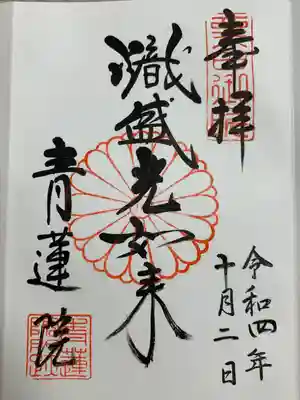 奉拝
令和四年
十月二日
熾盛光如来
青蓮院